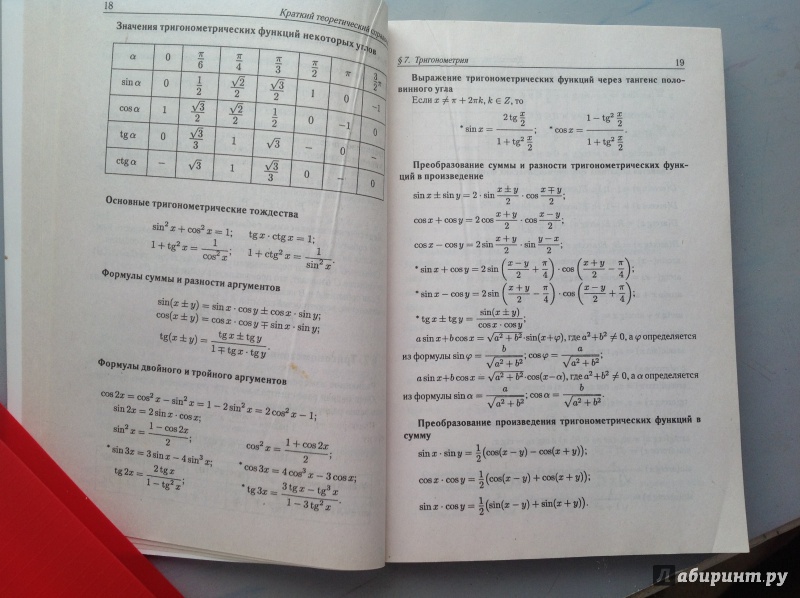 18
Краткий теоретический справоч
Значения тригонометрических функций некоторых углов
α 0 π/6 π/4 π/3 π/2 π 3/2 π
sin α 0 1/2 √2/2 √3/2 1 0 −1
cos α 1 √3/2 √2/2 1/2 0 −1 0
tg α 0 √3/3 1 √3 − 0 −
ctg α − √3 1 √3/3 0 − 0
Основные тригонометрические тождества
sin² x + cos² x = 1; tg x · ctg x = 1;
1 + tg² x = 1/cos² x; 1 + ctg² x = 1/sin² x.
Формулы суммы и разности аргументов
sin(x ± y) = sin x · cos y ± cos x · sin y;
cos(x ± y) = cos x · cos y ∓ sin x · sin y;
tg(x ± y) = (tg x ± tg y)/(1 ∓ tg x · tg y).
Формулы двойного и тройного аргументов
cos 2x = cos² x − sin² x = 1 − 2 sin² x = 2 cos² x − 1;
sin 2x = 2 sin x · cos x;
sin² x = (1 − cos 2x)/2; cos² x = (1 + cos 2x)/2;
* sin 3x = 3 sin x − 4 sin³ x; * cos 3x = 4 cos³ x − 3 cos x;
tg 2x = 2 tg x/(1 − tg² x); * tg 3x = (3 tg x − tg³ x)/(1 − 3 tg² x).
§ 7. Тригонометрия
19
Выражение тригонометрических функций через тангенс поло-
винного угла
Если x ≠ π + 2πk, k ∈ Z, то
* sin x = (2 tg x/2)/(1 + tg² x/2); * cos x = (1 − tg² x/2)/(1 + tg² x/2).
Преобразование суммы и разности тригонометрических функ-
ций в произведение
sin x ± sin y = 2 · sin (x ± y)/2 · cos (x ∓ y)/2;
cos x + cos y = 2 cos (x + y)/2 · cos (x − y)/2;
cos x − cos y = 2 sin (x + y)/2 · sin (y − x)/2;
* sin x + cos y = 2 sin ((x − y)/2 + π/4) · cos ((x + y)/2 − π/4);
* sin x − cos y = 2 sin ((x + y)/2 − π/4) · cos ((x − y)/2 + π/4);
* tg x ± tg y = sin(x ± y)/(cos x · cos y);
a sin x + b cos x = √(a² + b²) · sin(x + φ), где a² + b² ≠ 0, а φ определяется
из формулы sin φ = b/√(a² + b²); cos φ = a/√(a² + b²);
a sin x + b cos x = √(a² + b²) · cos(x − α), где a² + b² ≠ 0, а α определяется
из формулы sin α = a/√(a² + b²); cos α = b/√(a² + b²).
Преобразование произведения тригонометрических функций в
сумму
sin x · sin y = 1/2 (cos(x − y) − cos(x + y));
cos x · cos y = 1/2 (cos(x − y) + cos(x + y));
sin x · cos y = 1/2 (sin(x − y) + sin(x + y)).
Лабиринт.ру